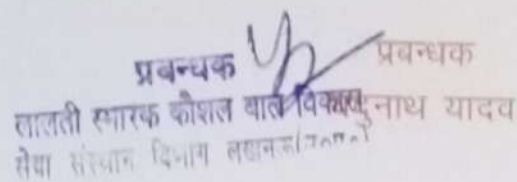 प्रबन्धक प्रबन्धक
लालती स्मारक कौशल बाल विकास नाथ यादव
सेवा संस्थान विभाग लखनऊ